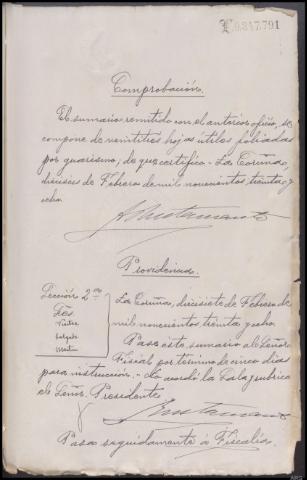 0.317.791
Comprobación.
El sumario remitido con el anterior oficio, se
compone de veintitres hojas útiles foliadas
por guarismo; de que certifico. - La Coruña,
dieciseis de Febrero de mil novecientos treinta y
ocho.
Bustamante
Providencia.
Sección 2ª
Sres.
La Coruña, diecisiete de Febrero de
mil novecientos treinta y ocho.
Salgado
Martin
Pase este sumario al Señor
Fiscal por término de cinco días
para instrucción. - Lo acordó la Sala y rubrica
el Señor Presidente
Bustamante
Pasa seguidamente á Fiscalía.